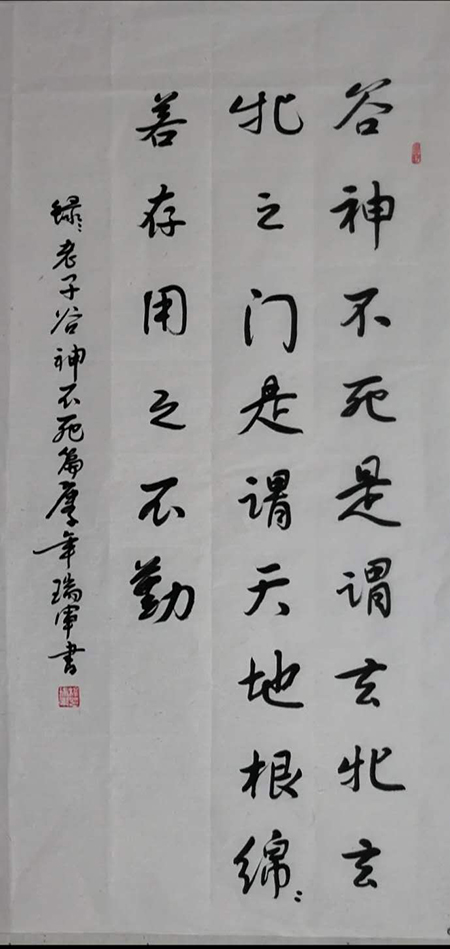 谷神不死是谓玄牝玄
牝之门是谓天地根绵〻
若存用之不勤
録老子谷神不死篇年瑞军書